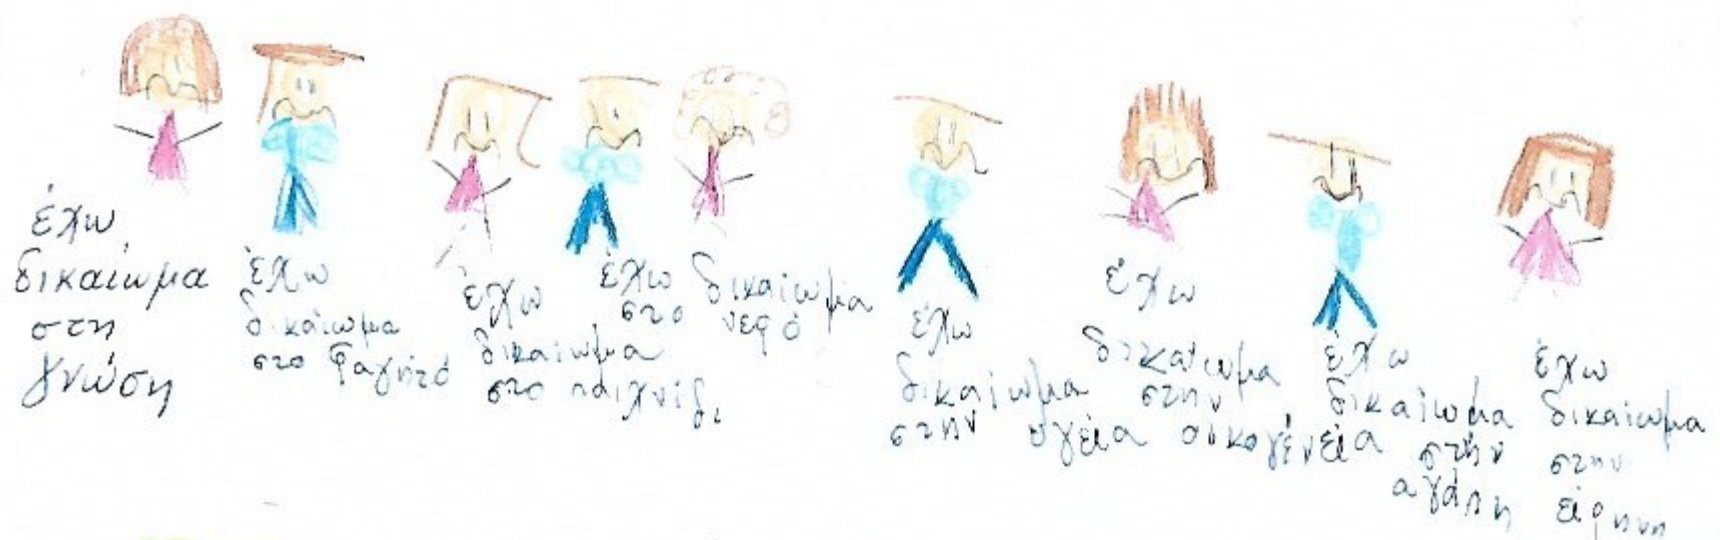 έχω
δικαίωμα
στη
γνώση
έχω
δικάιωμα
στο φαγητό
έχω
δικαίωμα
στο παιχνίδι
έχω δικαίωμα
στο νερό
έχω
δικαίωμα
στην υγεία
έχω
δικαίωμα
στην
οικογένεια
έχω
δικαίωμα
στην
αγάπη
έχω
δικαίωμα
στην
ειρηνη